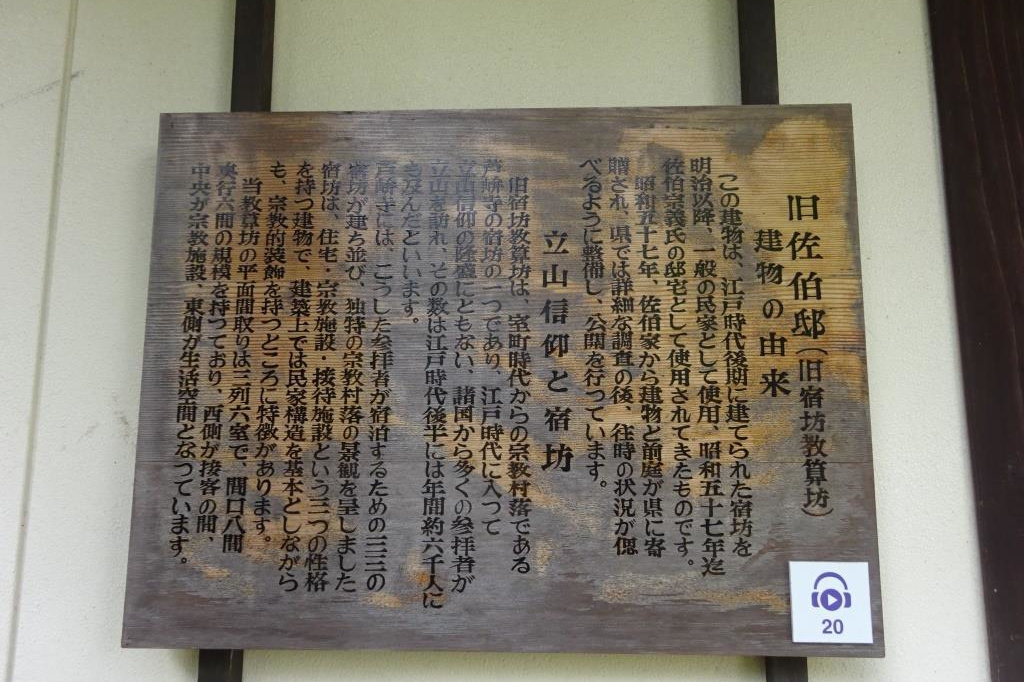 旧佐伯邸(旧宿坊教算坊)
建物の由来
この建物は、江戸時代後期に建てられた宿坊を
明治以降、一般の民家として使用、昭和五十七年迄
佐伯宗義氏の邸宅として使用されてきたものです。
昭和五十七年、佐伯家から建物と前庭が県に寄
贈され、県では詳細な調査の後、往時の状況が偲
べるように整備し、公開を行っています。
立山信仰と宿坊
旧宿坊教算坊は、室町時代からの宗教村落である
芦峅寺の宿坊の一つであり、江戸時代に入って
立山信仰の隆盛にともない、諸国から多くの参拝者が
立山を訪れ、その数は江戸時代後半には年間約六千人に
も及んだといいます。
芦峅寺は、こうした参拝者が宿泊するための三三の
宿坊が建ち並び、独特の宗教村落の景観を呈しました
宿坊は、住宅・宗教施設・接待施設という三つの性格
を持つ建物で、建築上では民家構造を基本としながら
も、宗教的装飾を持つところに特徴があります。
当教算坊の平面間取りは三列六室で、間口八間
奥行六間の規模を持っており、西側が接客の間、
中央が宗教施設、東側が生活空間となっています。
20